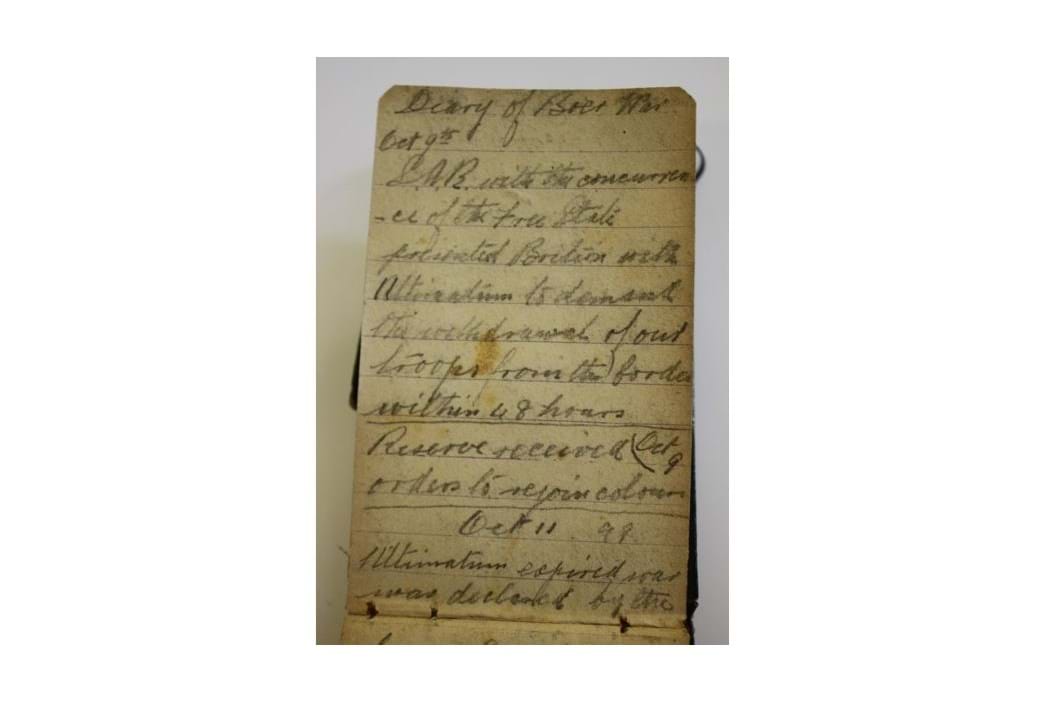 Diary of Boer War
Oct 9th
S.A.R. with the concurren
-ce of the Free State
presented Britian with
Ultimatum to demand
the withdrawal of our
troops from the border
within 48 hours
Reserve received (Oct 9
orders to rejoin colours
Oct 11 99
Ultimatum expired war
was declared by the